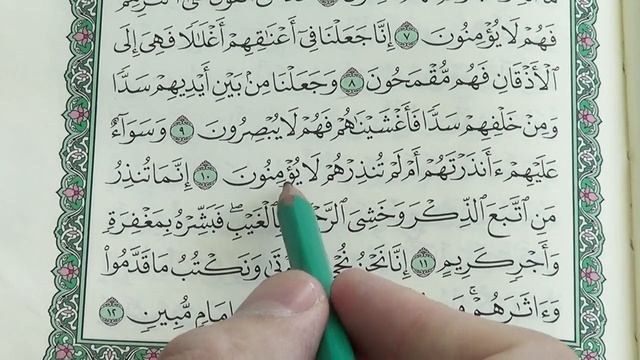 فَهُمْ لَا يُؤْمِنُونَ ٧ إِنَّا جَعَلْنَا فِي أَعْنَاقِهِمْ أَغْلَالًا فَهِيَ إِلَى
الْأَذْقَانِ فَهُمْ مُقْمَحُونَ ٨ وَجَعَلْنَا مِنْ بَيْنِ أَيْدِيهِمْ سَدًّا
وَمِنْ خَلْفِهِمْ سَدًّا فَأَغْشَيْنَاهُمْ فَهُمْ لَا يُبْصِرُونَ ٩ وَسَوَاءٌ
عَلَيْهِمْ ءَأَنْذَرْتَهُمْ أَمْ لَمْ تُنْذِرْهُمْ لَا يُؤْمِنُونَ ١٠ إِنَّمَا تُنْذِرُ
مَنِ اتَّبَعَ الذِّكْرَ وَخَشِيَ بِالْغَيْبِ فَبَشِّرْهُ بِمَغْفِرَةٍ
وَأَجْرٍ كَرِيمٍ ١١ إِنَّا نَحْنُ وَنَكْتُبُ مَا قَدَّمُوا
وَءَاثَارَهُمْ إِمَامٍ مُبِينٍ ١٢